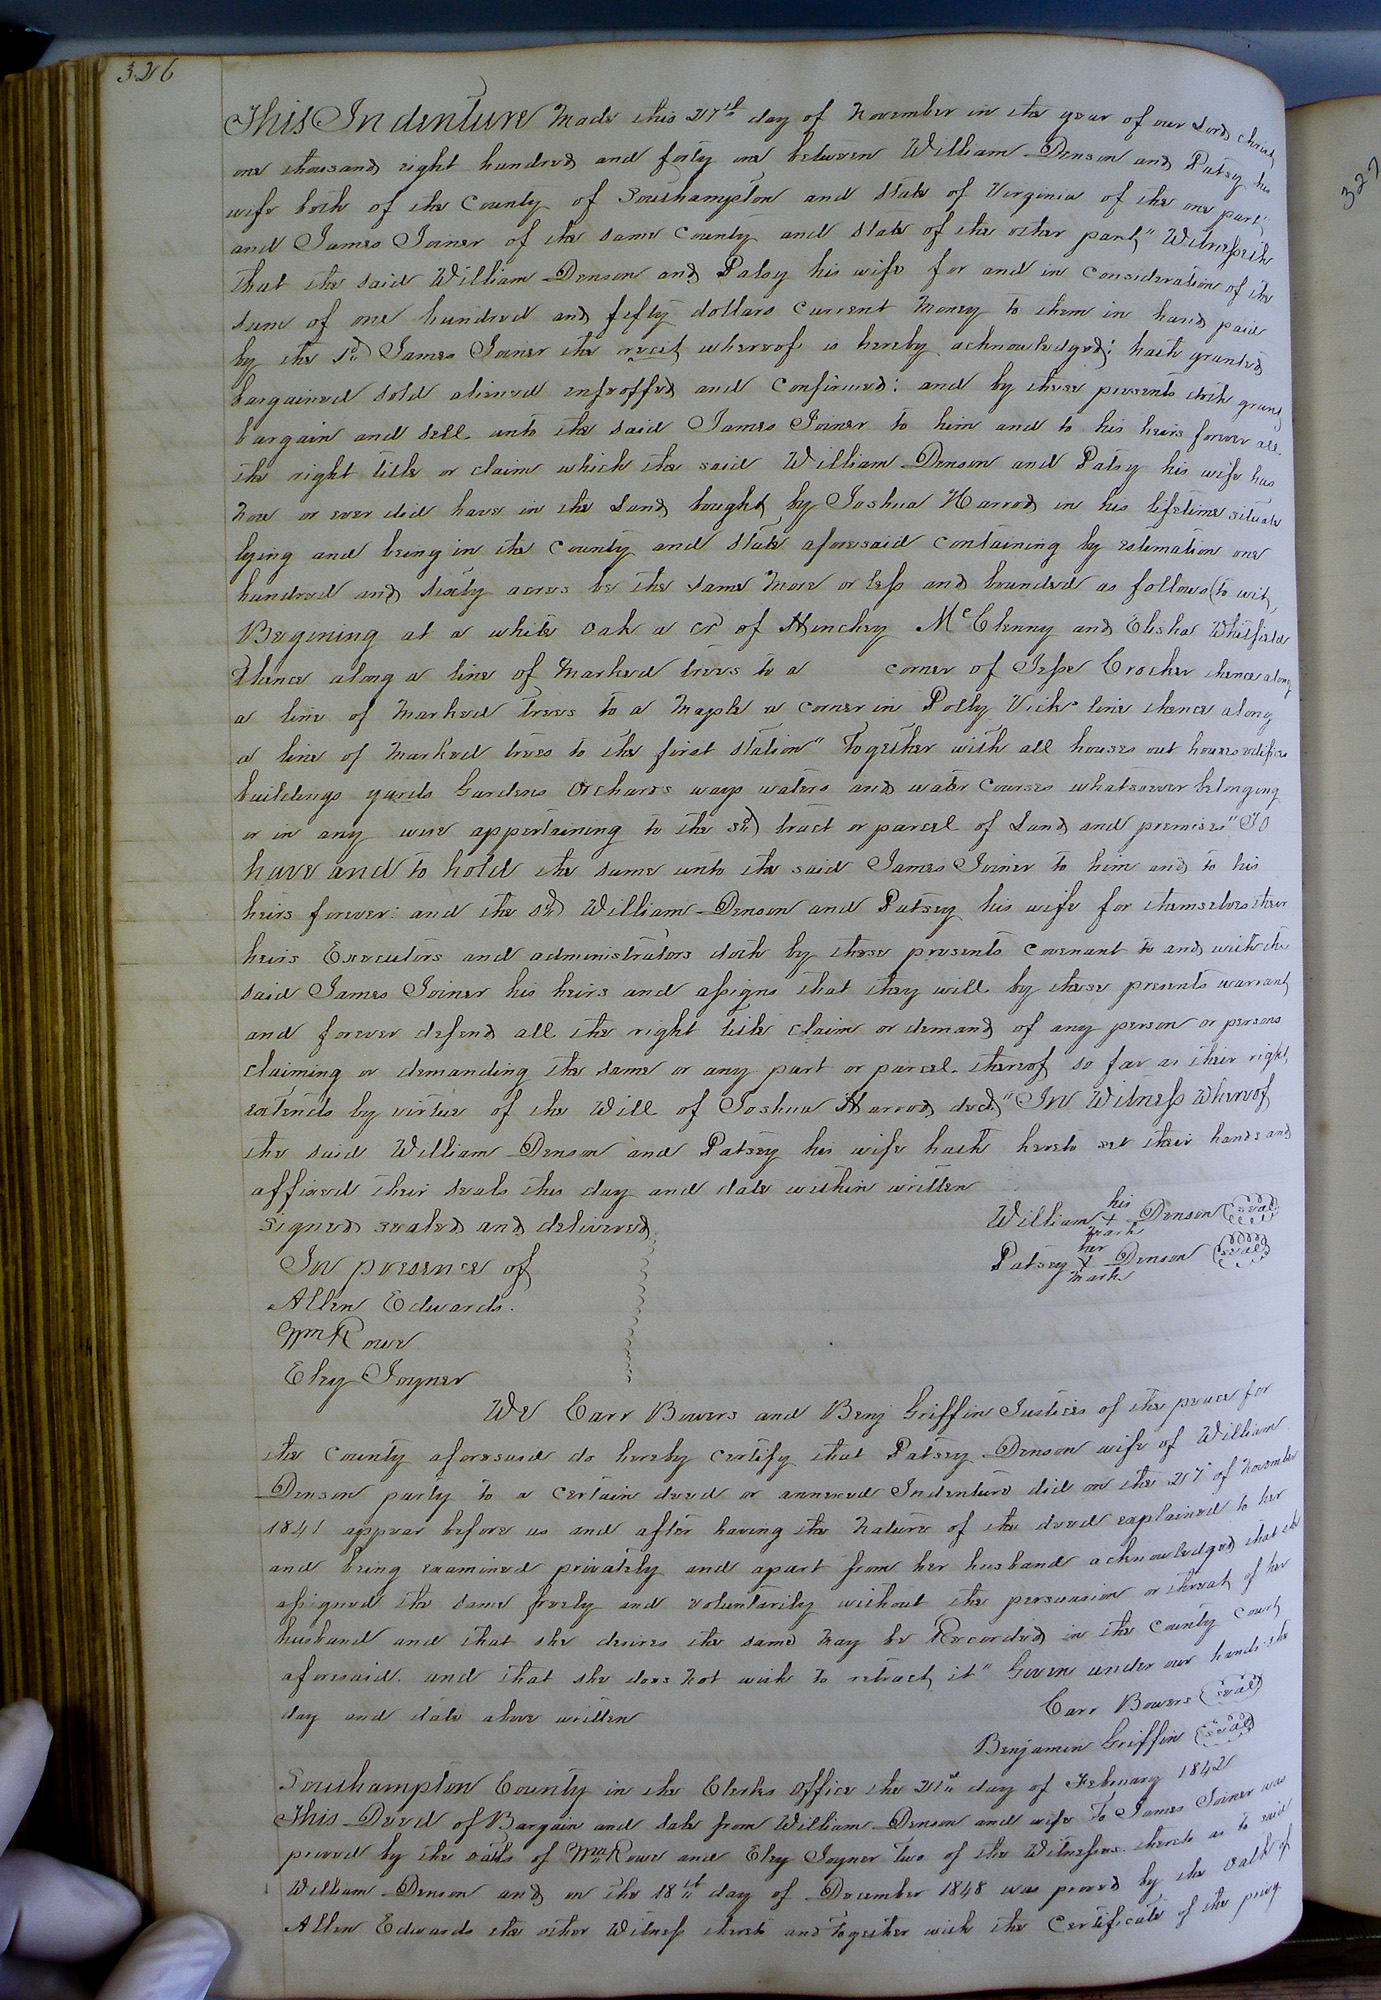 326
This Indenture Made this 27th day of November in the year of our Lord Christ
one thousand eight hundred and forty one between William Denson and Patsy his
wife both of the County of Southampton and State of Virginia of the one part
and James Joiner of the same County and State of the other part" Witnesseth
that the said William Denson and Patsy his wife for and in Consideration of the
Sum of one hundred and fifty dollars Current Money to them in hand paid
by the sd James Joiner the recit whereof is hereby acknowledged; hath granted
bargained sold aliened infeoffed and Confirmed: and by these presents doth grant
bargain and sell unto the said James Joiner to him and to his heirs forever all
the right title or claim which the said William Denson and Patsy his wife has
Now or ever did have in the Land bought by Joshua Harrod in his lifetime situate
lying and being in the County and State aforesaid Containing by estimation one
hundred and Sixty acres be the same More or less and bounded as follows (to wit,
Begining at a white oak a cr of Hinchey McClenny and Elisha Whitfield
thence along a line of Marked trees to a corner of Jesse Crocker thence along
a line of Marked trees to a Maple a corner in Polly Vicks line thence along
a line of Marked trees to the first Station" Together with all houses out houses edifices
buildings yards Gardens Orchards ways waters and water Courses whatsoever belonging
or in any wise appertaining to the sd tract or parcel of Land and premises" To
have and to hold the same unto the said James Joiner to him and to his
heirs forever: and the sd William Denson and Patsey his wife for themselves their
heirs Executors and administrators doth by these presents Covenant to and with the
said James Joiner his heirs and assigns that they will by these presents warrant
and forever defend all the right title claim or demand of any person or persons
claiming or demanding the same or any part or parcel thereof so far as their right
extends by virtue of the Will of Joshua Harrod decd" In Witness Whereof
the said William Denson and Patsey his wife hath hereto set their hands and
affixed their Seals this day and date within written
Signed sealed and delivered
In presence of
Allen Edwards.
Wm Rowe
Eley Joyner
his
William + Denson (Seal)
mark
her
Patsey X Denson (Seal)
Mark
We Carr Bowers and Benj Griffin Justices of the peace for
the County aforesaid do hereby Certify that Patsey Denson wife of William
Denson party to a Certain deed or annexed Indenture did on the 27 of November
1841 appear before us and after having the Nature of the deed explained to her
and being examined privately and apart from her husband acknowledged that she
assigned the same freely and voluntarily without the persuasion or threat of her
husband and that she desires the same May be Recorded in the County Court
aforesaid. and that she does Not wish to retract it" Given under our hands the
day and date above written
Carr Bowers (Seal)
Benjamin Griffin (Seal)
Southampton County in the Clerks Office the 21st day of February 1842
This Deed of Bargain and Sale from William Denson and wife To James Joiner was
proved by the oaths of Wm Rowe and Eley Joyner two of the Witnesses thereto as to said
William Denson and on the 18th day of December 1848 was proved by the Oath of
Allen Edwards the other Witness thereto and Together with the Certificate of the privy
327